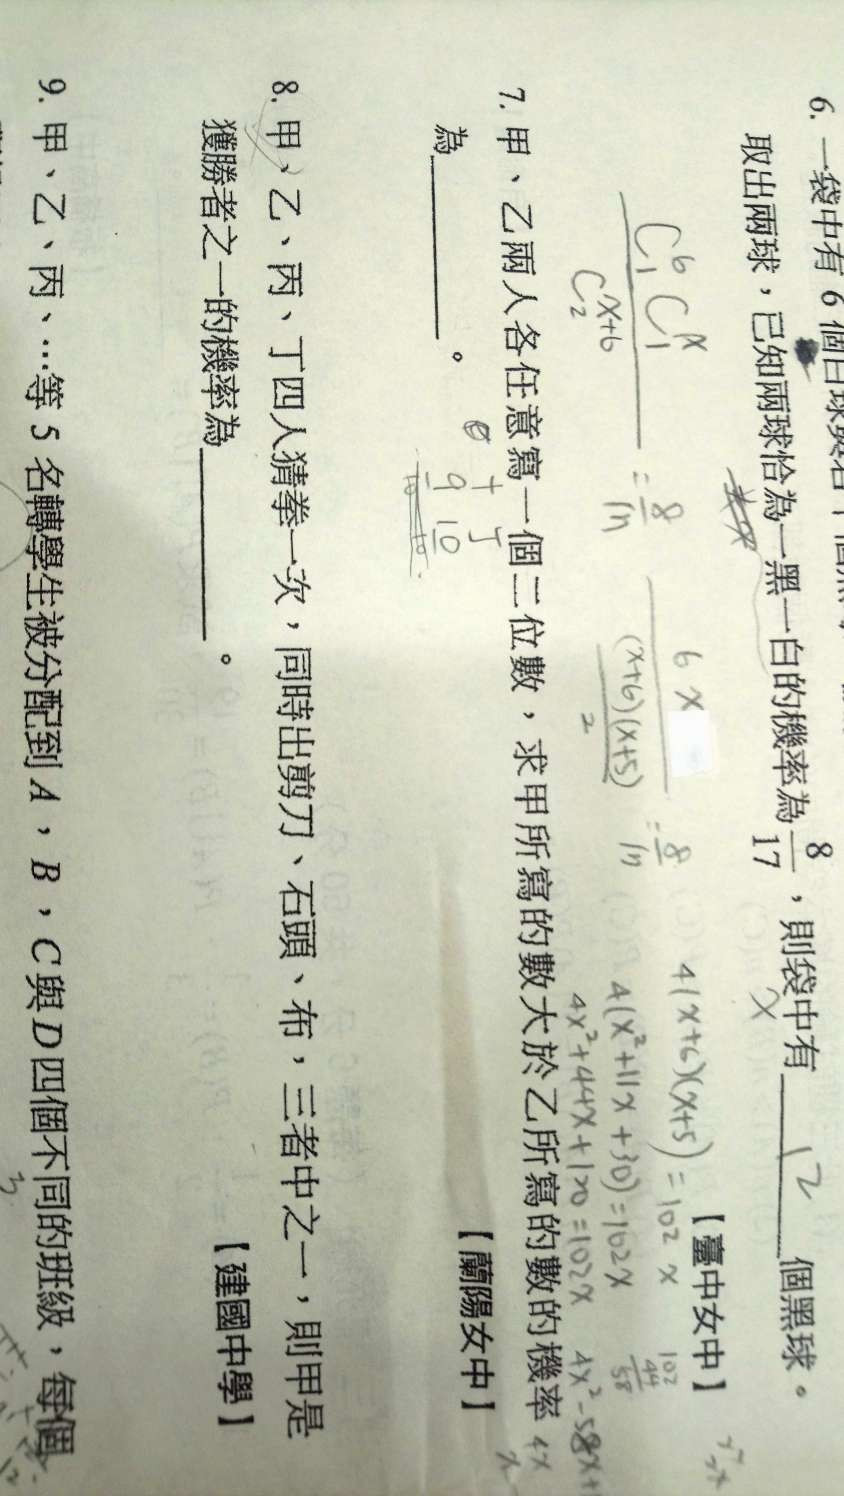 6. 一袋中有 6 個白球與若干個黑球
取出兩球，已知兩球恰為一黑一白的機率為 8/17，則袋中有 12 個黑球。
x
【臺中女中】
C⁶₁ Cˣ₁ / Cˣ⁺⁶₂ = 8/17
6x / ((x+6)(x+5)/2) = 8/17
4(x+6)(x+5) = 102x
4(x²+11x+30) = 102x
4x²+44x+120 = 102x
4x²-58x+1
102
44
58
7. 甲、乙兩人各任意寫一個二位數，求甲所寫的數大於乙所寫的數的機率
為＿＿＿＿。
【蘭陽女中】
十
9 10
8. 甲、乙、丙、丁四人猜拳一次，同時出剪刀、石頭、布，三者中之一，則甲是
獲勝者之一的機率為＿＿＿＿。
【建國中學】
9. 甲、乙、丙、…等 5 名轉學生被分配到 A，B，C 與 D 四個不同的班級，每個